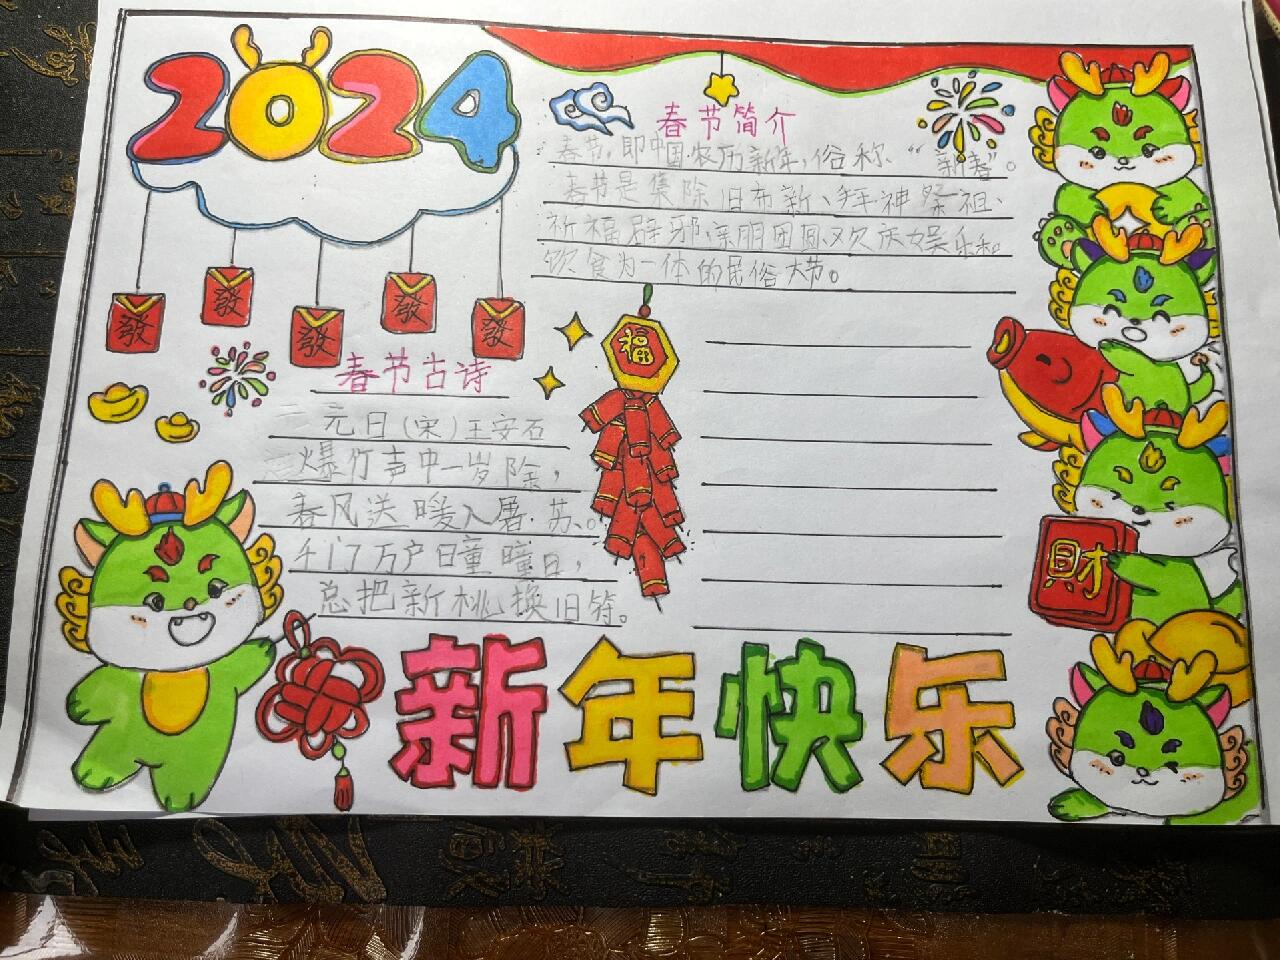 2024
春节简介
春节,即中国农历新年,俗称“新春”。
春节是集除旧布新、拜神祭祖、
祈福辟邪、亲朋团圆、欢庆娱乐和
饮食为一体的民俗大节。
發
發
發
發
發
福
春节古诗
元日(宋)王安石
爆竹声中一岁除,
春风送暖入屠苏。
千门万户曈曈日,
总把新桃换旧符。
財
新年快乐